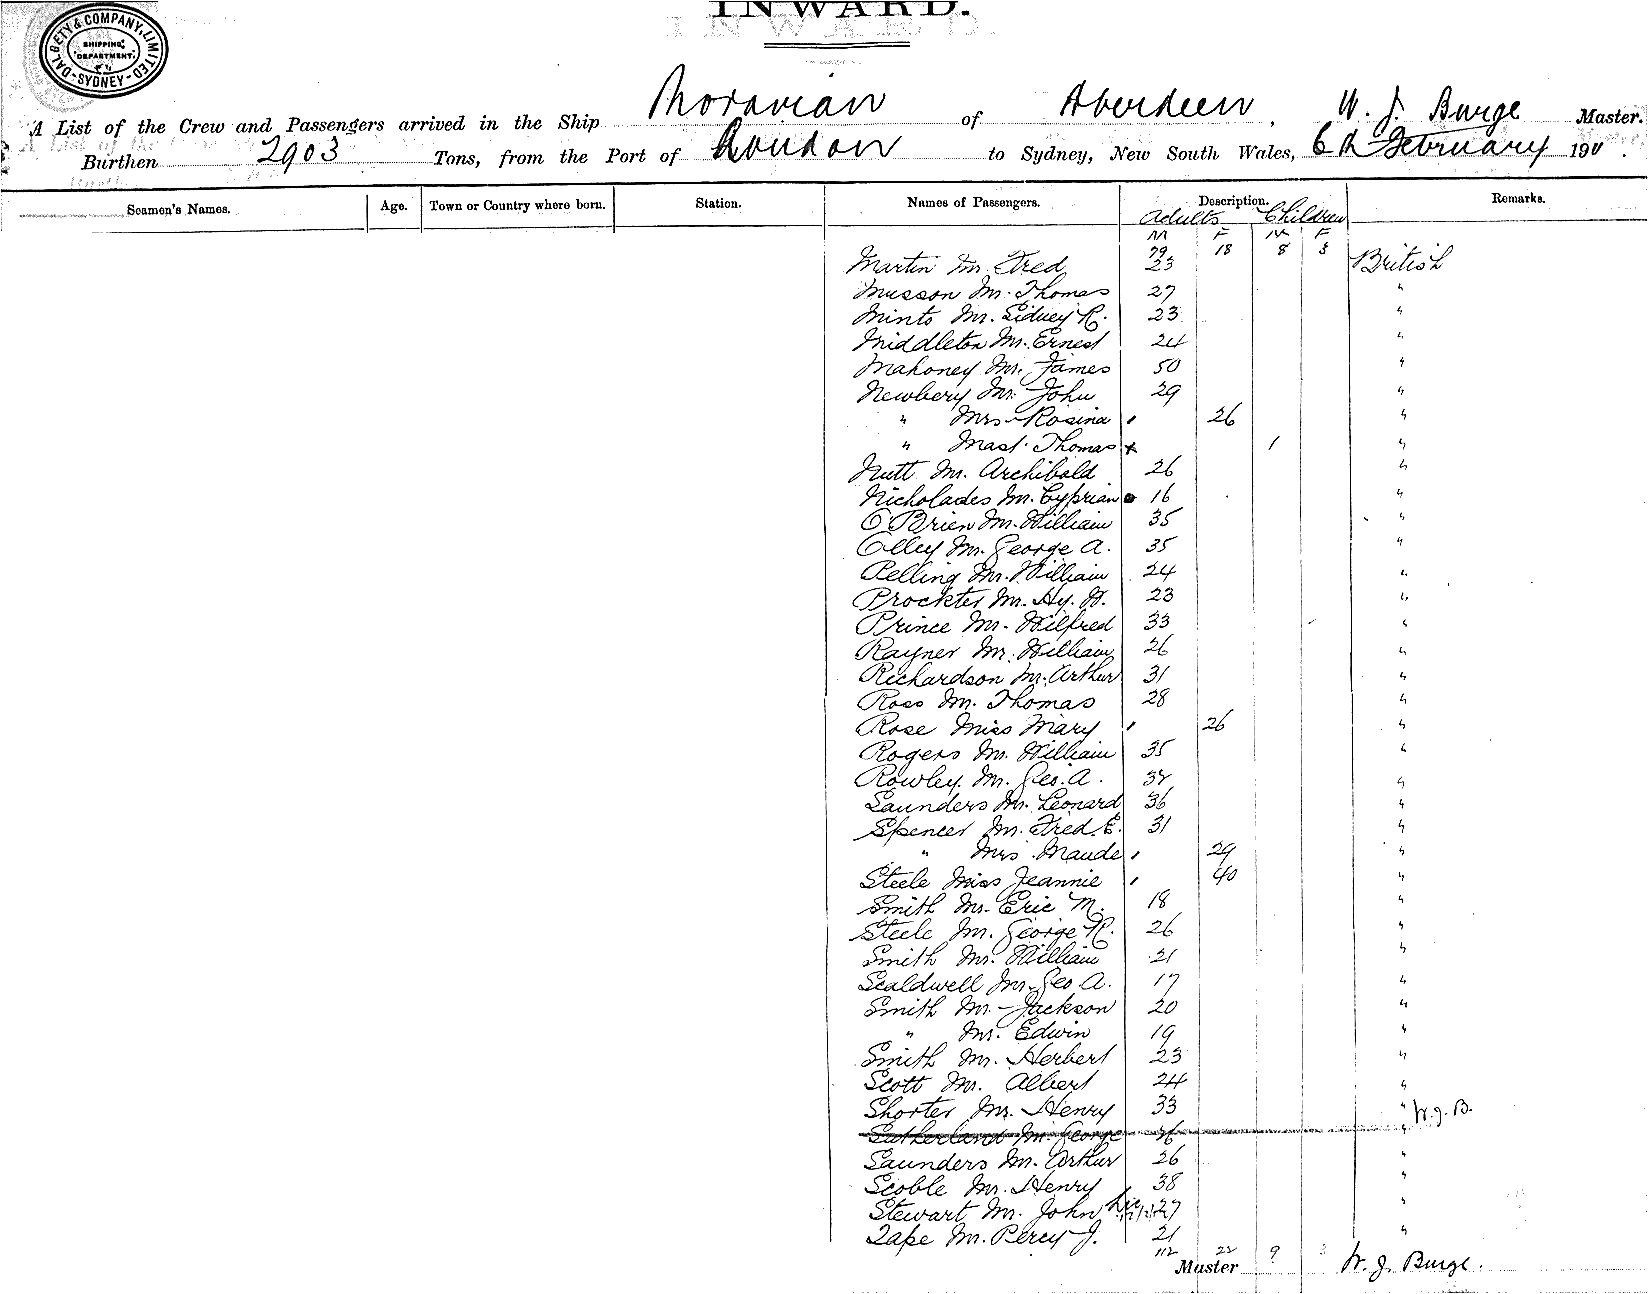 INWARD.
DALGETY & COMPANY, LIMITED
SHIPPING DEPARTMENT
SYDNEY
A List of the Crew and Passengers arrived in the Ship Moravian of Aberdeen, W. J. Burge Master.
Burthen 2903 Tons, from the Port of London to Sydney, New South Wales, 6th February 190
Seamen's Names. Age. Town or Country where born. Station. Names of Passengers. Description. Remarks.
Adults Children
M F M F
79 18 8 3
Martin Mr. Fred 23 British
Musson Mr. Thomas 27 "
Minto Mr. Sidney R. 23 "
Middleton Mr. Ernest 24 "
Mahoney Mr. James 50 "
Newbery Mr. John 29 "
" Mrs Rosina 26 "
" Mast. Thomas + 1 "
Nutt Mr. Archibald 26 "
Nicholades Mr. Cyprian 16 "
O'Brien Mr. William 35 "
Olley Mr. George A. 35 "
Pelling Mr. William 24 "
Prockter Mr. Hy. W. 23 "
Prince Mr. Wilfred 33 "
Rayner Mr. William 26 "
Richardson Mr. Arthur 31 "
Ross Mr. Thomas 28 "
Rose Miss Mary 26 "
Rogers Mr. William 35 "
Rowley Mr. Geo. A. "
Saunders Mr. Leonard 36 "
Spencer Mr. Fred. E. 31 "
" Mrs Maude 29 "
Steele Miss Jeannie 40 "
Smith Mr. Eric M. 18 "
Steele Mr. George R. 26 "
Smith Mr. William 21 "
Scaldwell Mr. Geo. A. 17 "
Smith Mr. Jackson 20 "
" Mr. Edwin 19 "
Smith Mr. Herbert 23 "
Scott Mr. Albert 24 "
Shorter Mr. Henry 33 " W. J. B.
Sutherland Mr. George 26 "
Saunders Mr. Arthur 26 "
Scoble Mr. Henry 38 "
Stewart Mr. John 27 "
Tape Mr. Percy J. 21 "
112 22 9 3
Master W. J. Burge.